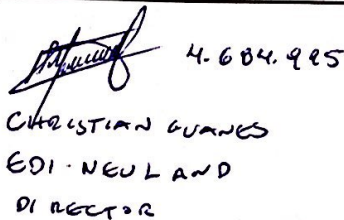 4.684.995
CHRISTIAN GUANES
EDI-NEULAND
DIRECTOR